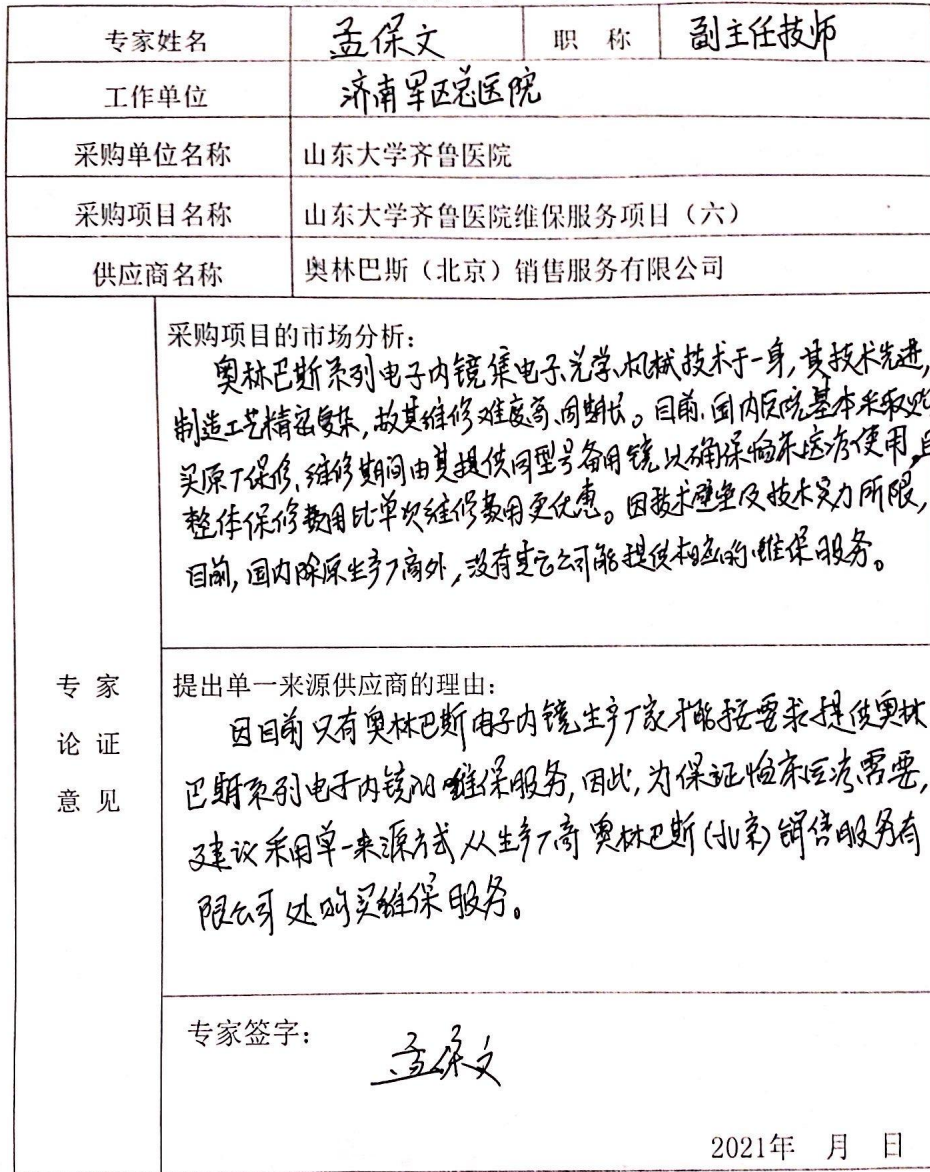 专家姓名 孟保文 职 称 副主任技师
工作单位 济南军区总医院
采购单位名称 山东大学齐鲁医院
采购项目名称 山东大学齐鲁医院维保服务项目（六）
供应商名称 奥林巴斯（北京）销售服务有限公司
采购项目的市场分析：
奥林巴斯系列电子内镜集电子、光学、机械技术于一身，其技术先进，
制造工艺精密复杂，故其维修难度高、周期长。目前，国内医院基本采取购
买原厂保修、维修期间由其提供同型号备用镜以确保临床医疗使用，且
整体保修费用比单次维修费用更优惠。因技术壁垒及技术实力所限，
目前，国内除原生产厂商外，没有其它公司能提供相应的维保服务。
专 家
论 证
意 见
提出单一来源供应商的理由：
因目前只有奥林巴斯电子内镜生产厂家才能按要求提供奥林
巴斯系列电子内镜的维保服务，因此，为保证临床医疗需要，
建议采用单一来源方式从生产厂商奥林巴斯(北京)销售服务有
限公司处购买维保服务。
专家签字：
孟保文
2021年 月 日